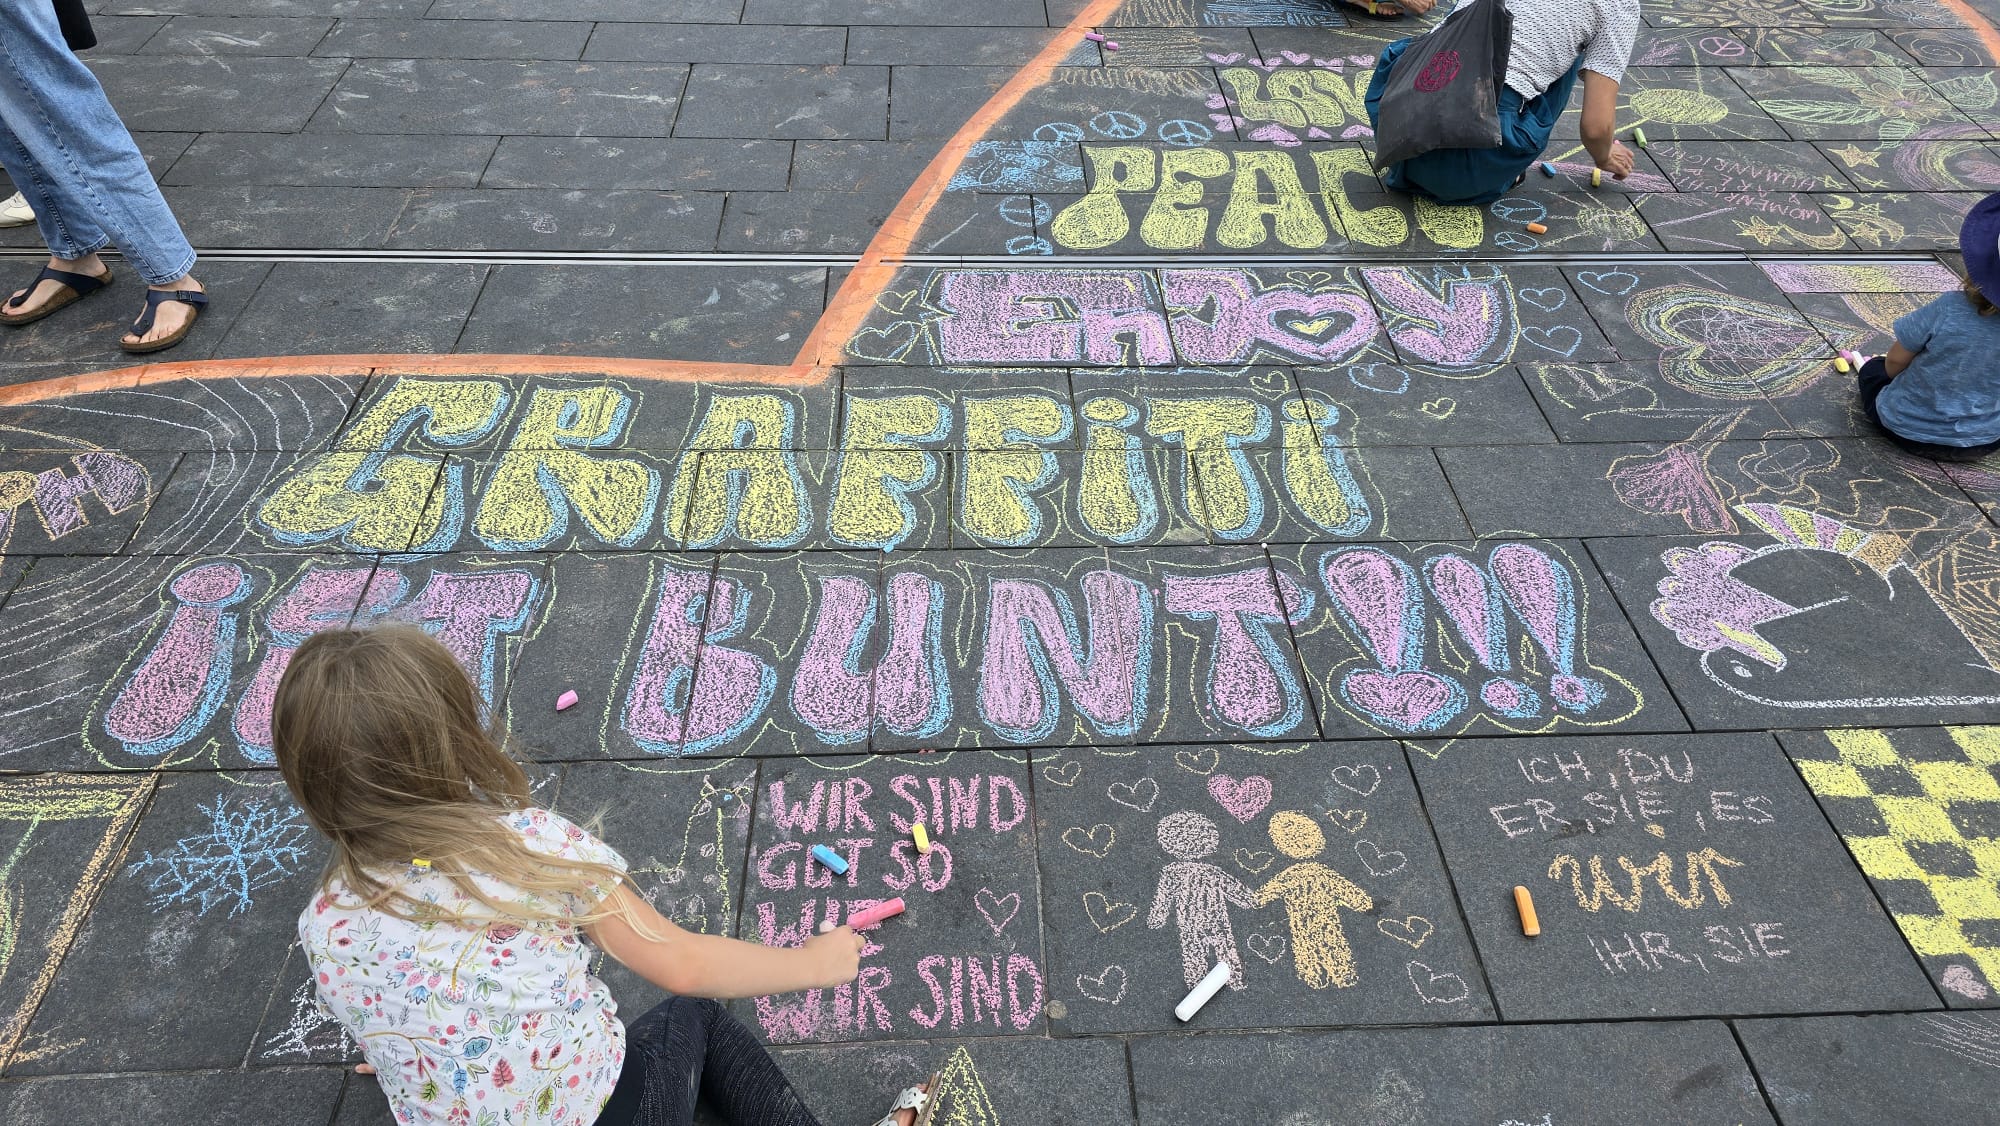 PEAC
EnJOY
GRAFFiTi
iST BUNT!!!
WIR SIND
GUT SO
WIE
WIR SIND
ICH, DU
ER, SIE, ES
wir
IHR, SIE